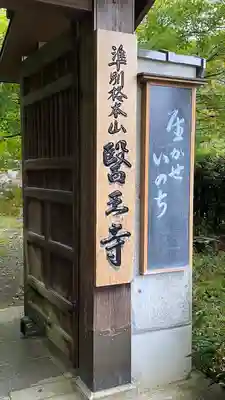 準別格本山
醫王寺
生かせ
いのち